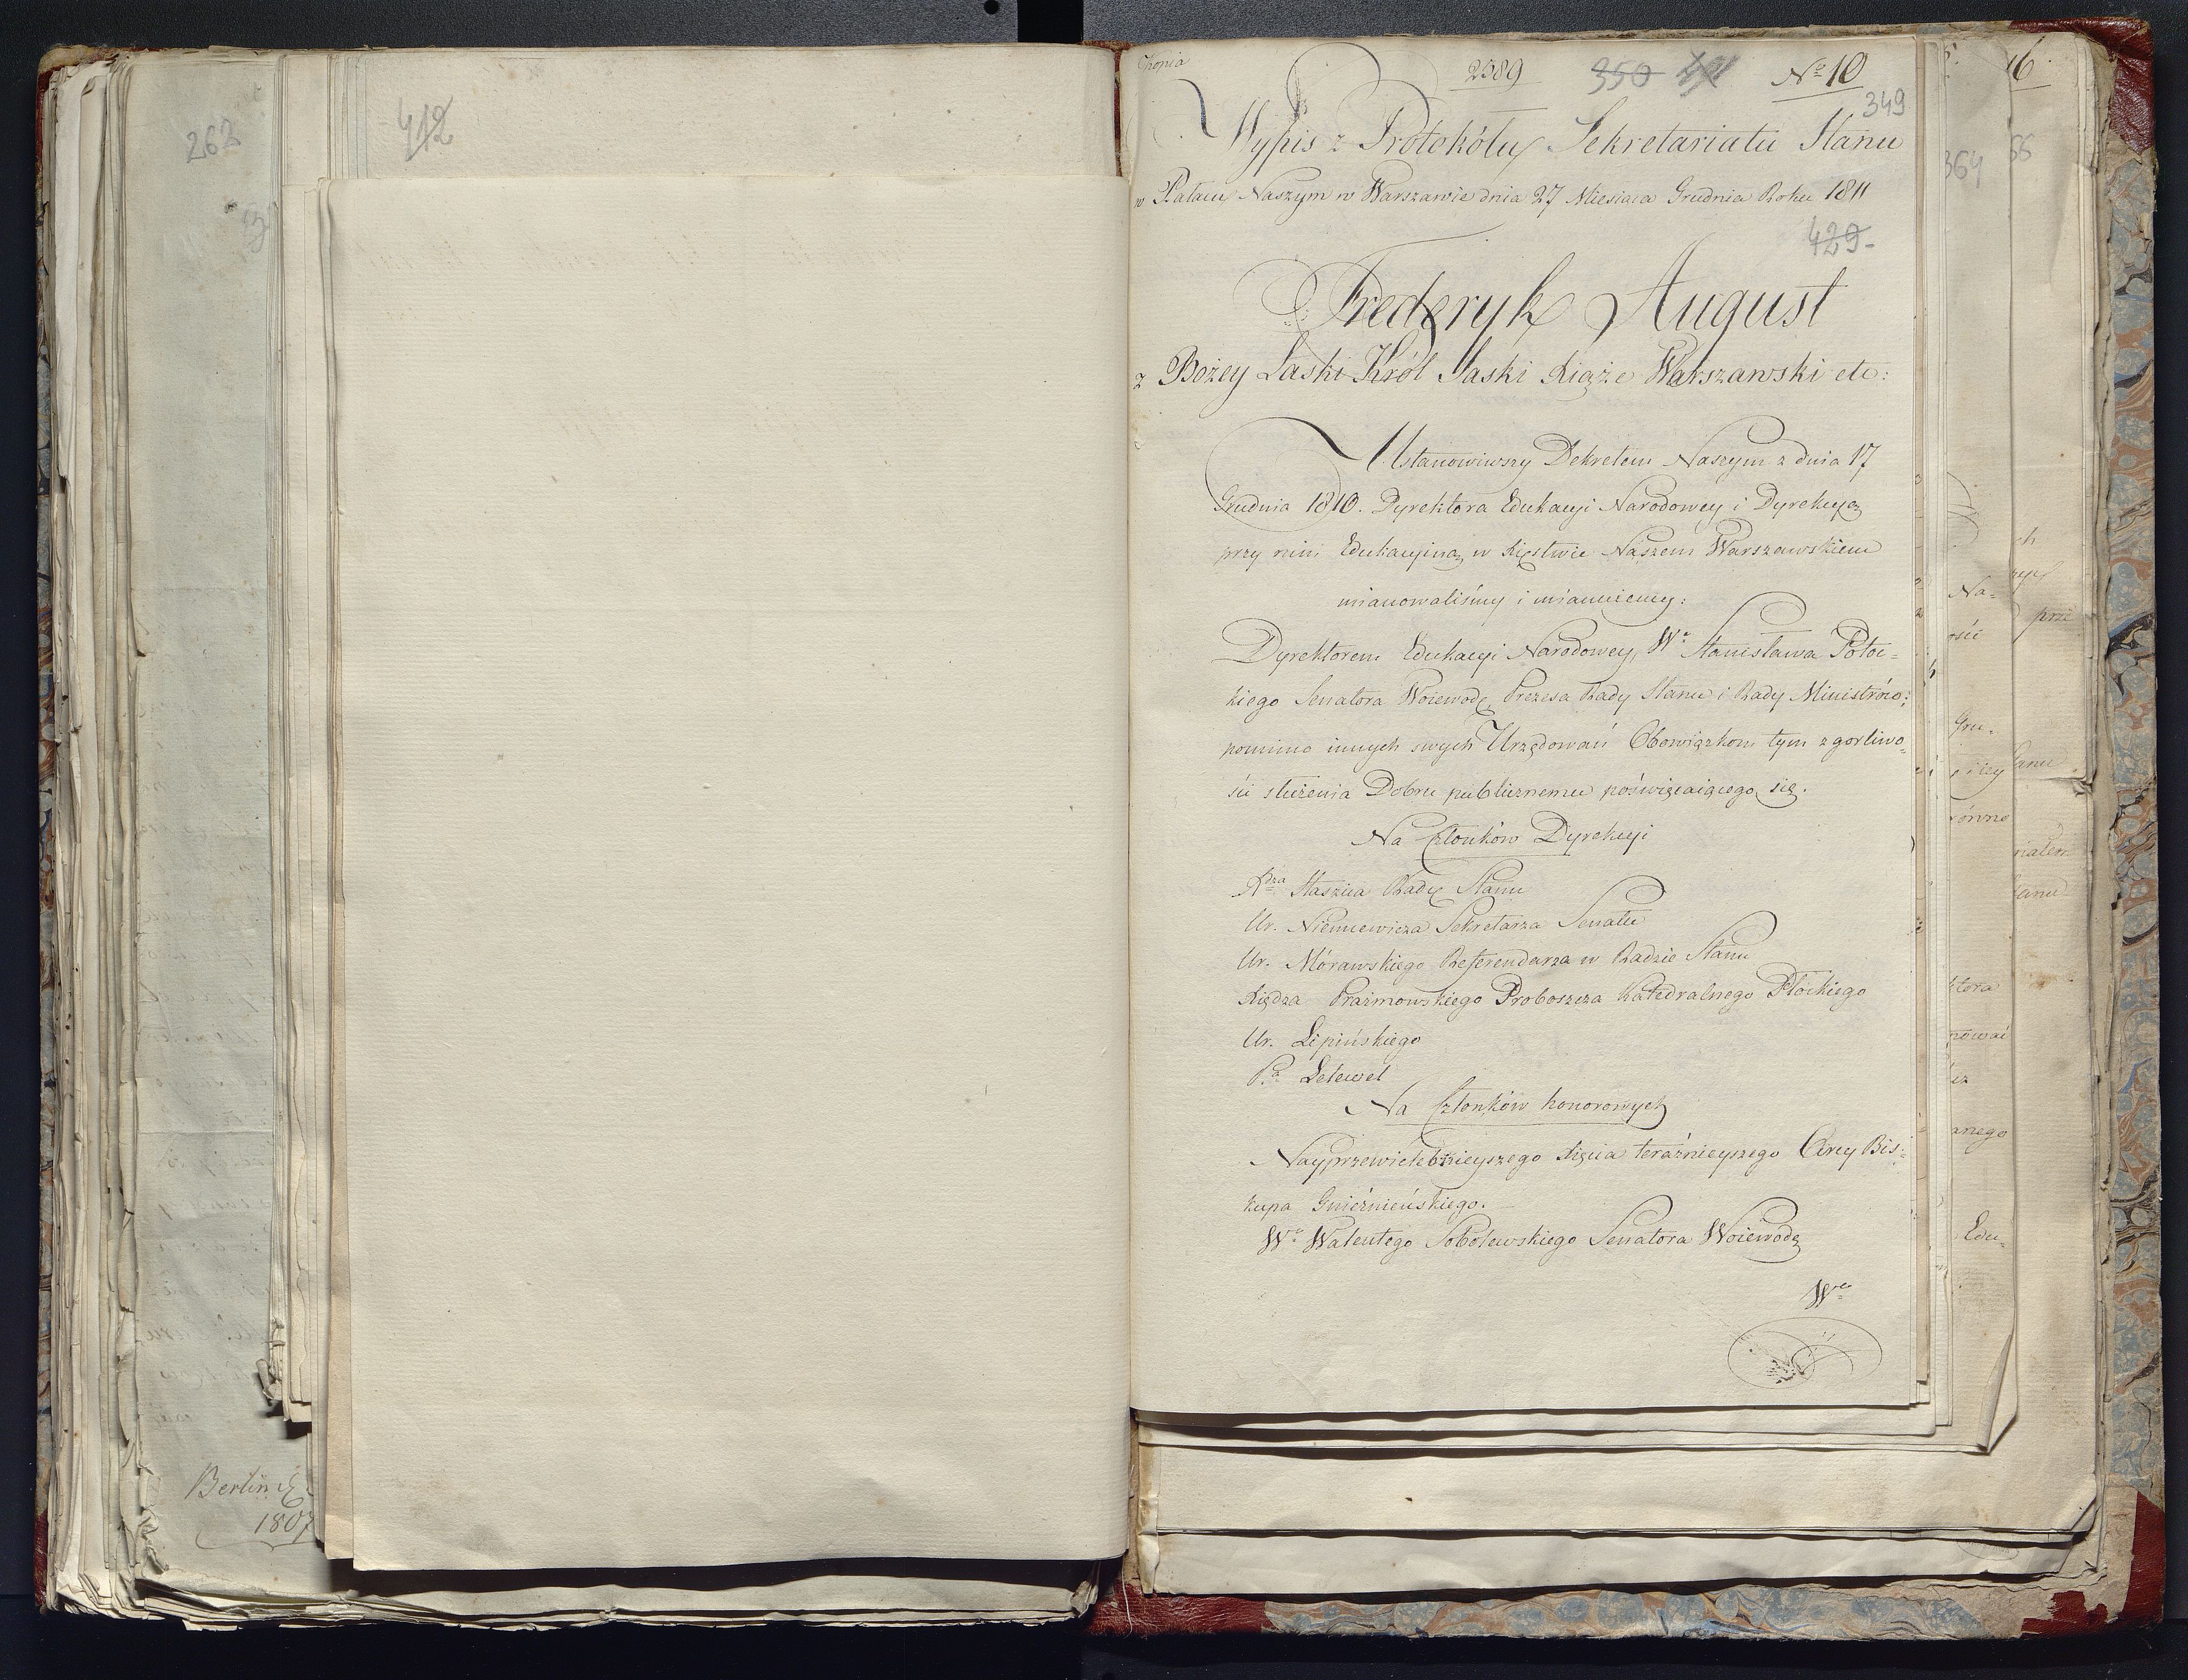 262
412
Berlin
1807
Kopia
2589 350 No 10
349
Wypis z Protokółu Sekretariatu Stanu
w Pałacu Naszym w Warszawie dnia 27 Miesiąca Grudnia Roku 1811
429-
Frederyk August
z Bożey Łaski Król Saski Xiąże Warszawski etc:
Ustanowiwszy Dekretem Naszym z dnia 17
Grudnia 1810. Dyrektora Edukacyi Narodowey i Dyrekcyą
przy nim Edukacyiną w Xięstwie Naszem Warszawskiem
mianowaliśmy i mianuiemy:
Dyrektorem Edukacyi Narodowey, Wo Stanisława Potoc=
kiego Senatora Woiewodę, Prezesa Rady Stanu i Rady Ministrów;
pomimo innych swych Urzędowań Obowiązkom tym z gorliwo=
ści służenia Dobru publicznemu poświęcaiącego się.
Na Członków Dyrekcyi
Xdza Staszica Radcę Stanu
Ur. Niemcewicza Sekretarza Senatu
Ur. Mórawskiego Referendarza w Radzie Stanu
Xiędza Prażmowskiego Proboszcza Katedralnego Płockiego
Ur. Lipińskiego
Pa Lelewel
Na Członków honorowych
Nayprzewielebnieyszego Xięcia teraźnieyszego Arcy Bis=
kupa Gnieźnieńskiego.
Wo Walentego Sobolewskiego Senatora Woiewodę
Wo
16.
364
56
Na=
prze
ości
Gru=
równo
ktora
anego
Edu=